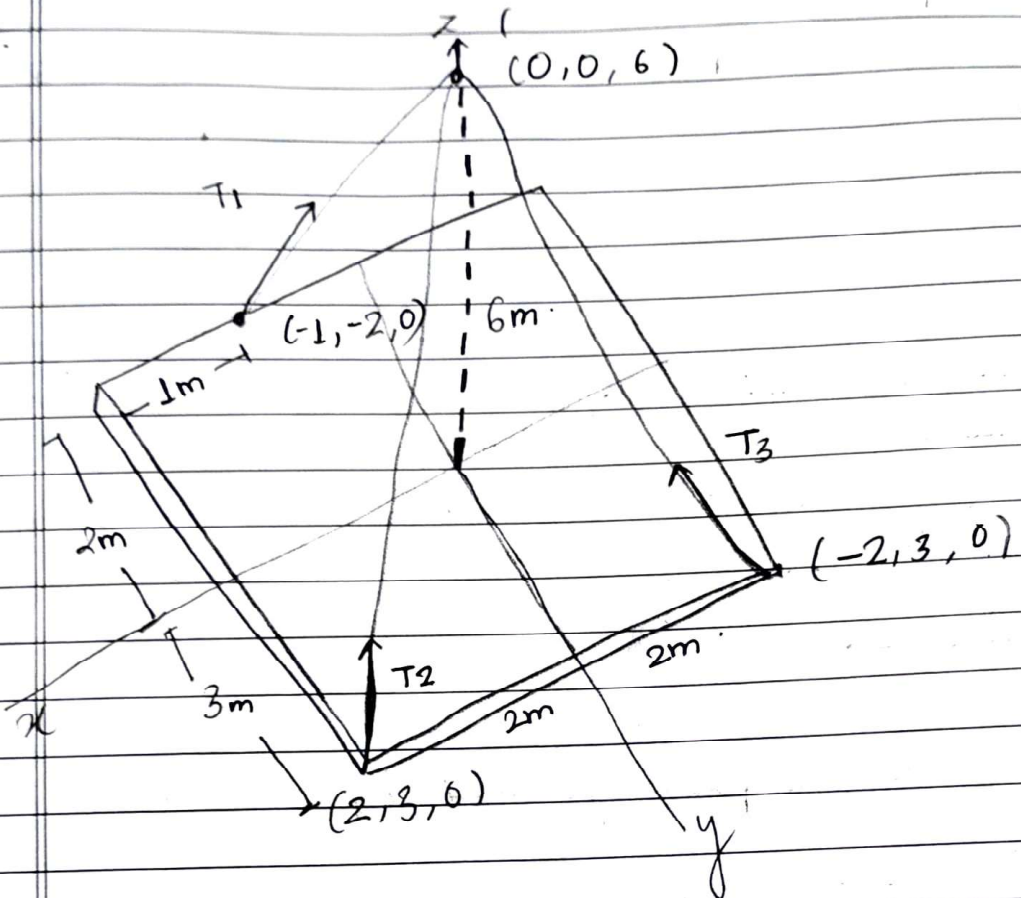 z
(0,0,6)
T1
(-1,-2,0)
6m
1m
T3
2m
(-2,3,0)
2m
T2
x
3m
2m
(2,3,0)
y